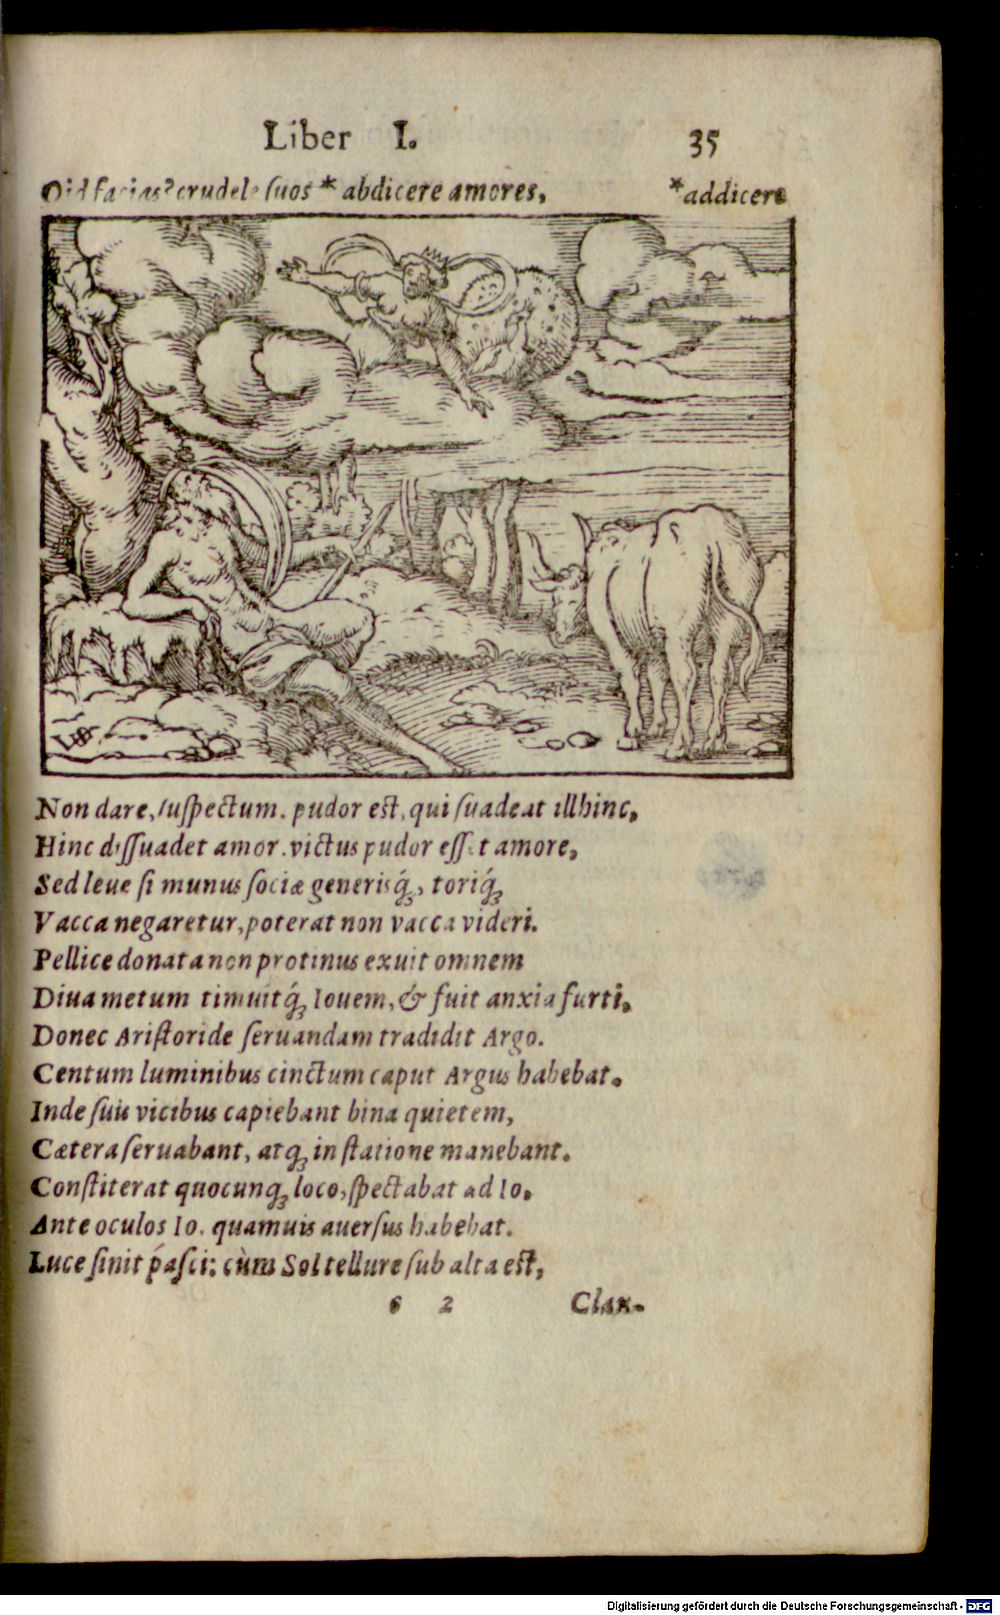 Liber I. 35
Qid facias? crudele suos * abdicere amores, *addicere
Non dare, suspectum. pudor est, qui suadeat illhinc,
Hinc dissuadet amor. victus pudor esset amore,
Sed leue si munus sociæ generisq́ꝫ, toriq́ꝫ
Vacca negaretur, poterat non vacca videri.
Pellice donata non protinus exuit omnem
Diua metum timuitq́ꝫ Iouem, & fuit anxia furti,
Donec Aristoride seruandam tradidit Argo.
Centum luminibus cinctum caput Argus habebat.
Inde suis vicibus capiebant bina quietem,
Cætera seruabant, atqꝫ in statione manebant.
Constiterat quocunqꝫ loco, spectabat ad Io,
Ante oculos Io. quamuis auersus habebat.
Luce sinit pásci: cùm Sol tellure sub alta est,
6 2 Clau-
Digitalisierung gefördert durch die Deutsche Forschungsgemeinschaft - DFG